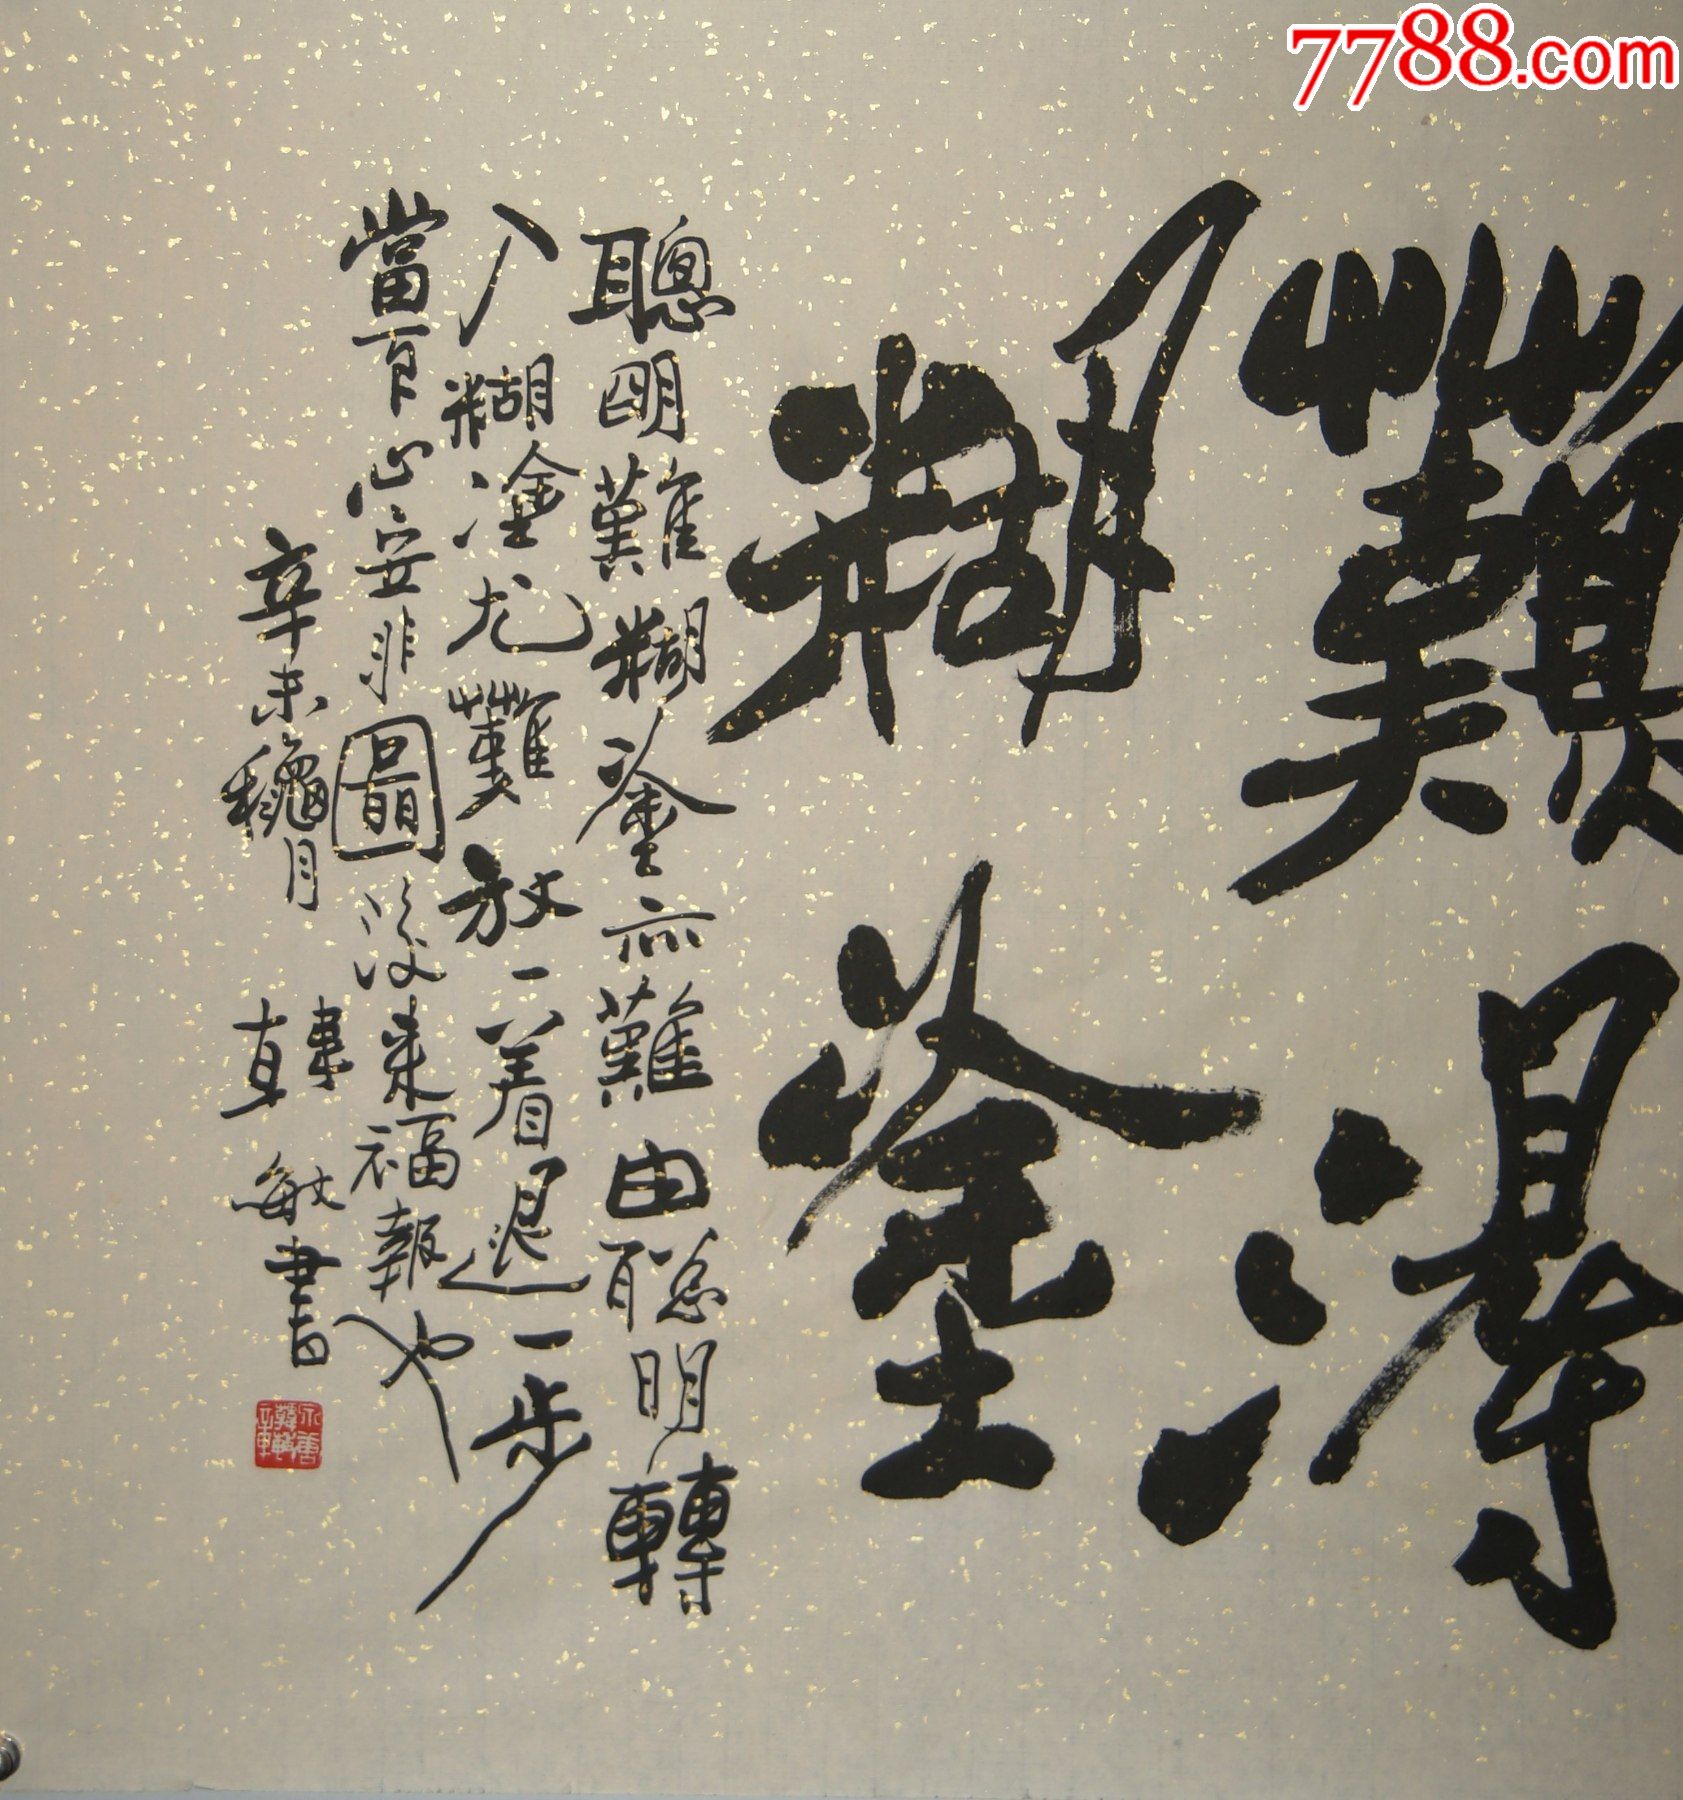 7788.com
難得
糊塗
聰明難糊塗亦難由聰明轉
入糊塗尤難放一着退一步
當下心安非圖後来福報也
辛未龝月 韓敏書